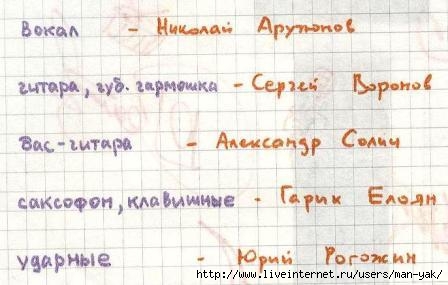 вокал - Николай Арутюнов
гитара, губ. гармошка - Сергей Воронов
бас-гитара - Александр Солич
саксофон, клавишные - Гарик Елоян
ударные - Юрий Рогожин
http://www.liveinternet.ru/users/man-yak/